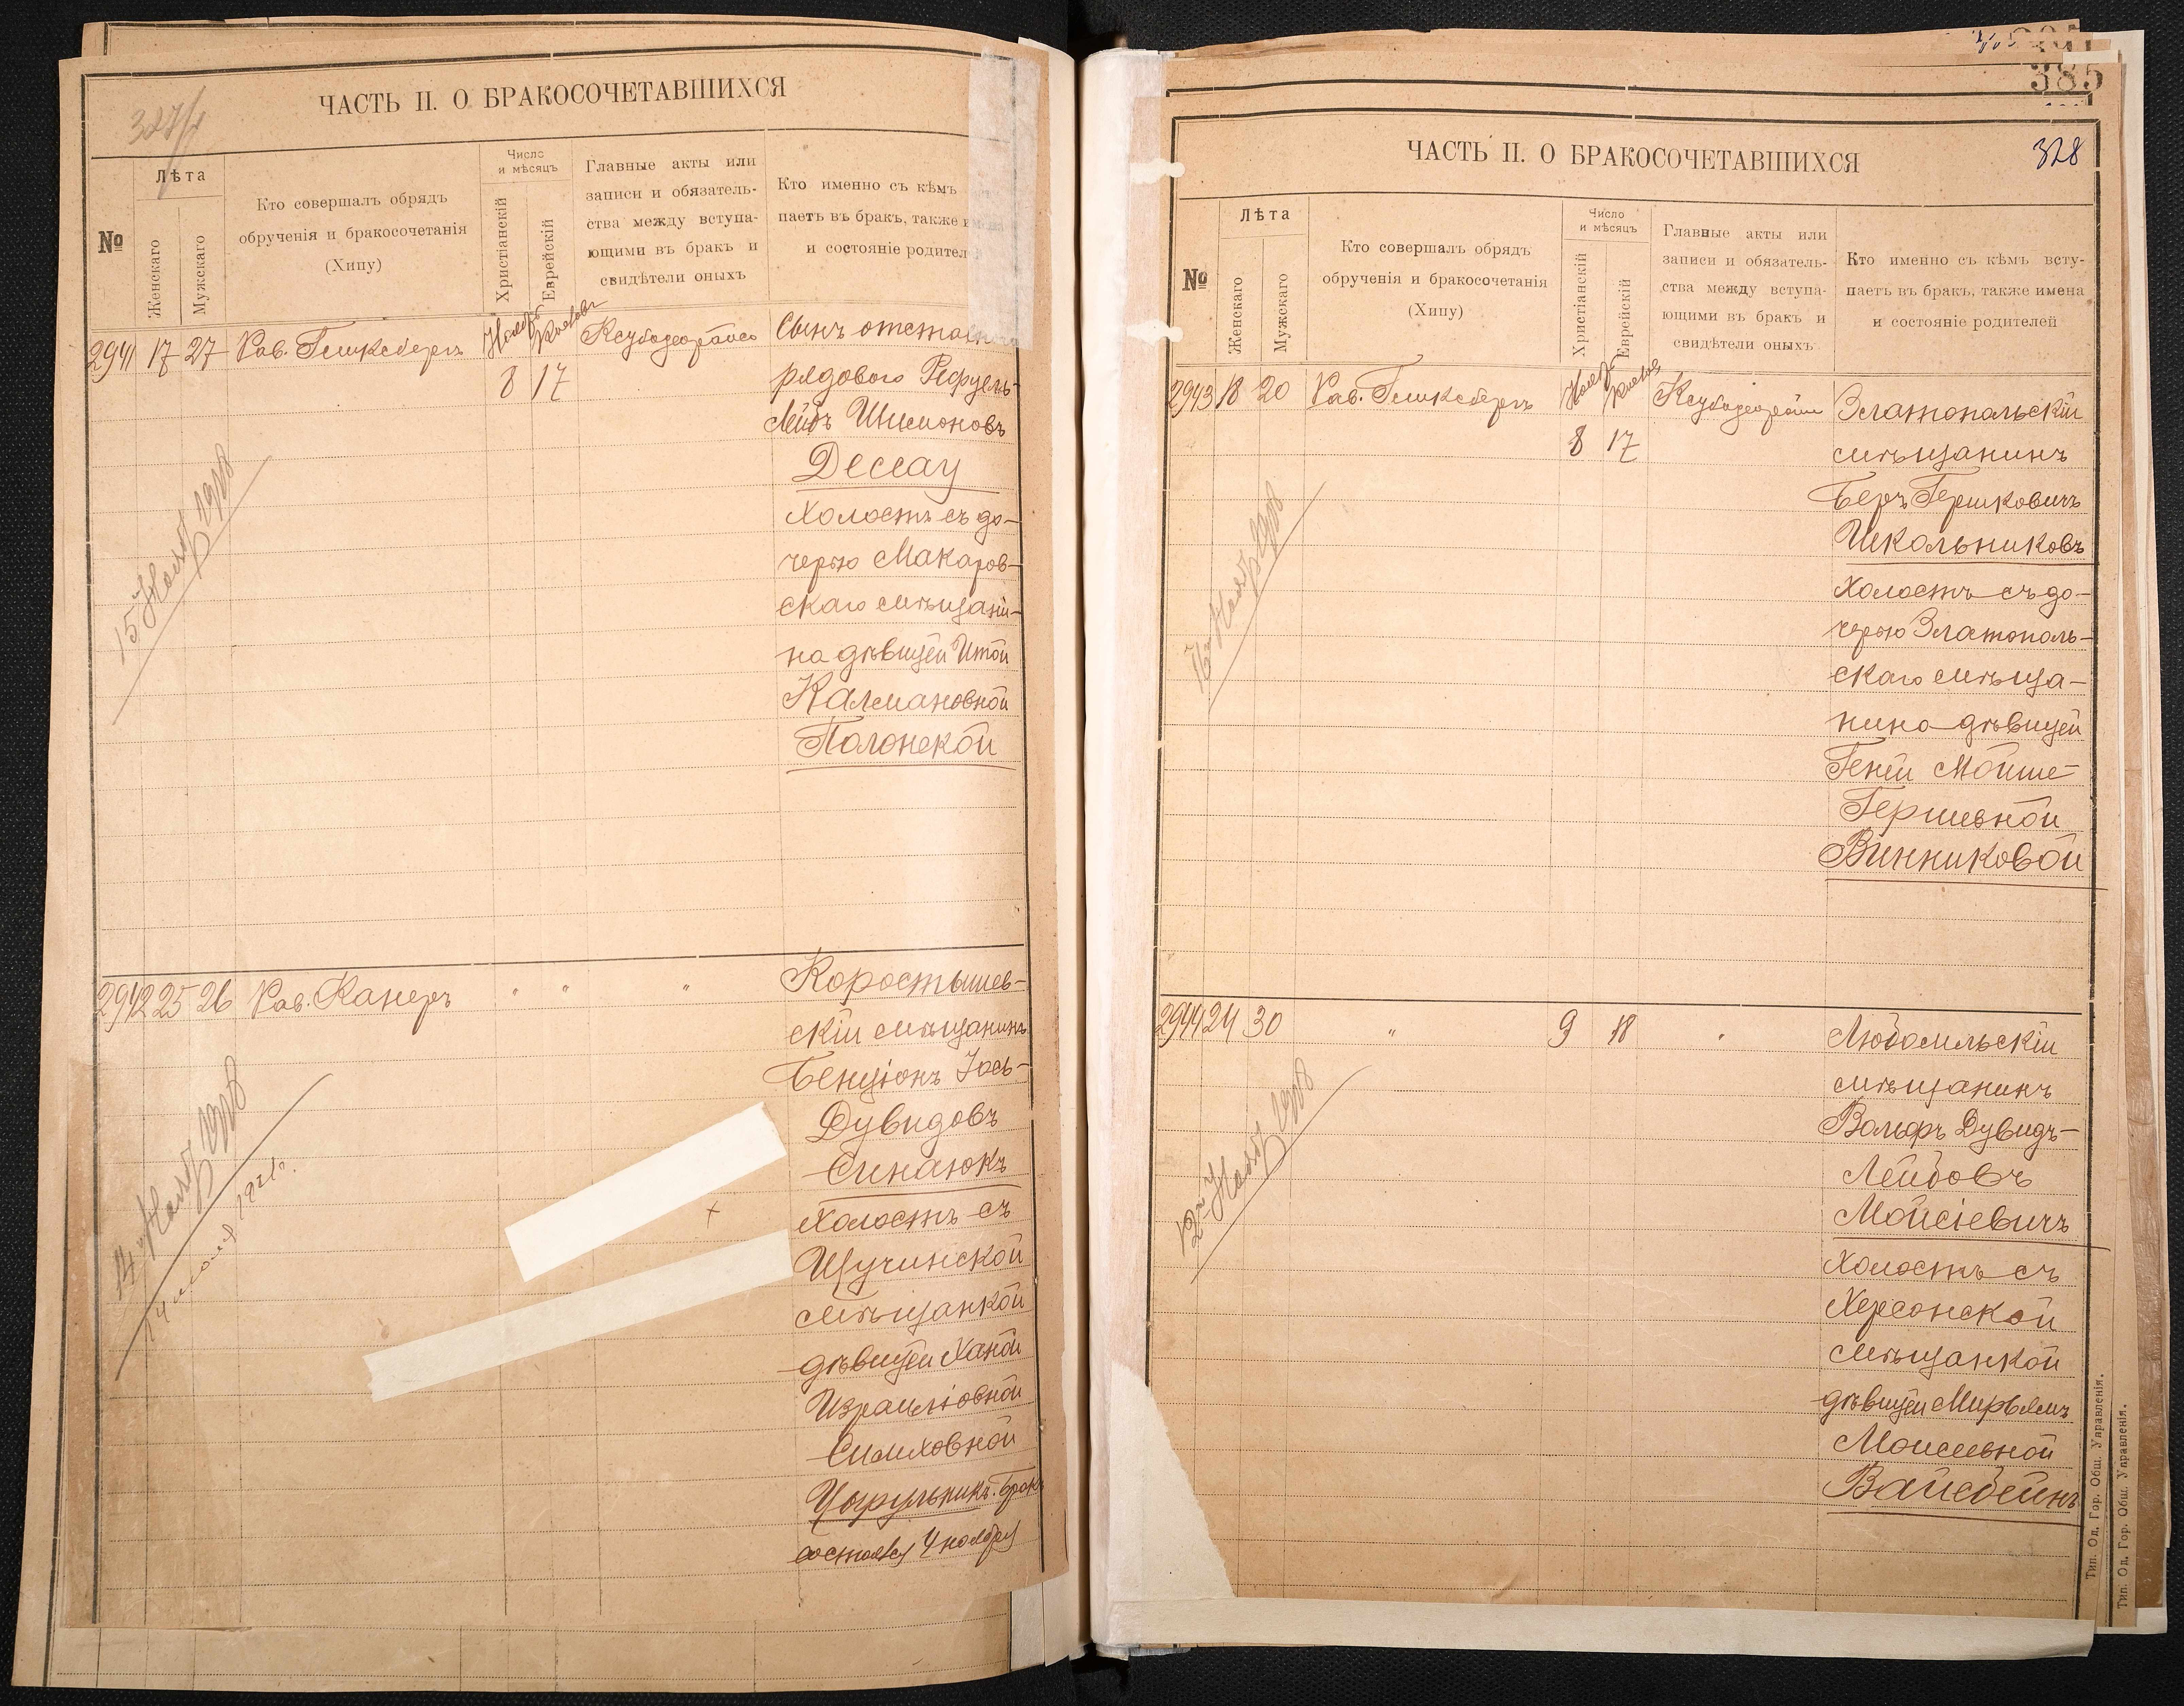 327/1
ЧАСТЬ II. О БРАКОСОЧЕТАВШИХСЯ
№
Лѣта
Женскаго
Мужскаго
Кто совершалъ обрядъ
обрученія и бракосочетанія
(Хипу)
Число
и мѣсяцъ
Христіанскій
Еврейскій
Главные акты или
записи и обязатель-
ства между вступа-
ющими въ бракъ и
свидѣтели оныхъ
Кто именно съ кѣмъ
паетъ въ бракъ, также
и состояніе родител
2941 17 27 Рав. Гликсбергъ
8 17
Сынъ отставного
рядового Рефуель-
Лейбъ Шимоновъ
Дессау
Холостъ съ до-
черью Макаров-
скаго мѣщани-
на дѣвицей Итой
Калмановной
Полонской
15 Нояб 1908
2942 25 26 Рав. Канеръ " " "
Коростышев-
скій мѣщанинъ
Бенціонъ Іось-
Дувидовъ
Синаюкъ
Холостъ съ
Щучинской
мѣщанкой
дѣвицей Ханой
Израилювной
Симховной
Цырульникъ. Бракъ
состоялся 4 ноября
14 Нояб 1908
385
328
ЧАСТЬ II. О БРАКОСОЧЕТАВШИХСЯ
№
Лѣта
Женскаго
Мужскаго
Кто совершалъ обрядъ
обрученія и бракосочетанія
(Хипу)
Число
и мѣсяцъ
Христіанскій
Еврейскій
Главные акты или
записи и обязатель-
ства между вступа-
ющими въ бракъ и
свидѣтели оныхъ
Кто именно съ кѣмъ всту-
паетъ въ бракъ, также имена
и состояніе родителей
2943 18 20 Рав. Гликсбергъ
8 17
Златопольскій
мѣщанинъ
Беръ Гершковичъ
Школьниковъ
Холостъ съ до-
черью Златополь-
скаго мѣща-
нина дѣвицей
Геней Мойше-
Гершевной
Винниковой
2944 24 30 " 9 18 "
Любомльскій
мѣщанинъ
Вольфъ Дувидъ-
Лейбовъ
Мойсіевичъ
Холостъ съ
Херсонской
мѣщанкой
дѣвицей Мирьямъ
Моисеевной
Вайсбейнъ
12 Нояб 1908
Тип. Од. Гор. Общ. Управленія.
Тип. Од. Гор. Общ. Управленія.